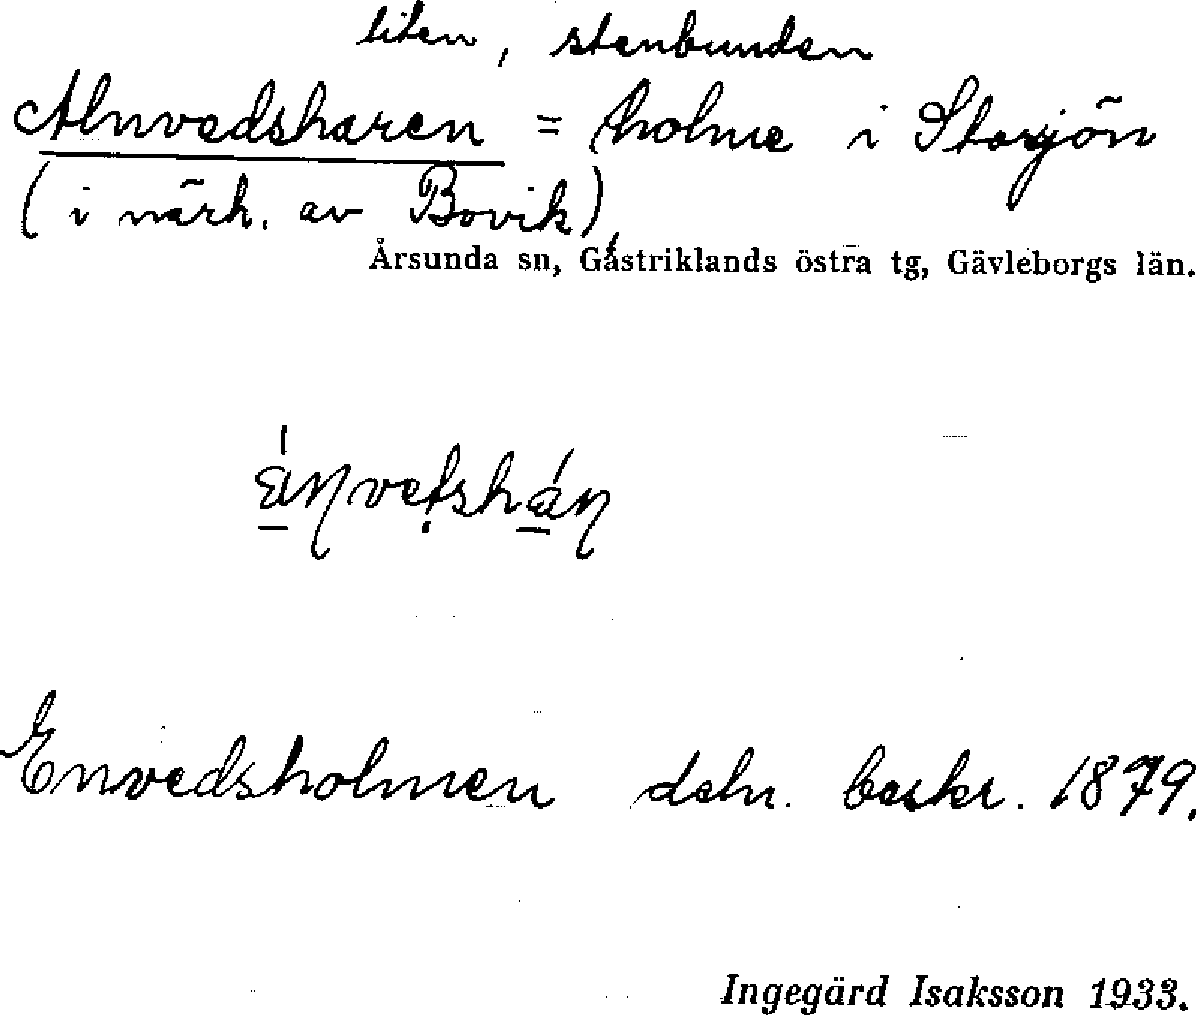 liten, stenbunden
Alnvedsharen = holme i Storsjön
(i närh. av Bovik)
Årsunda sn, Gästriklands östra tg, Gävleborgs län.
Envedsholmen deln. beskr. 1879.
Ingegärd Isaksson 1933.